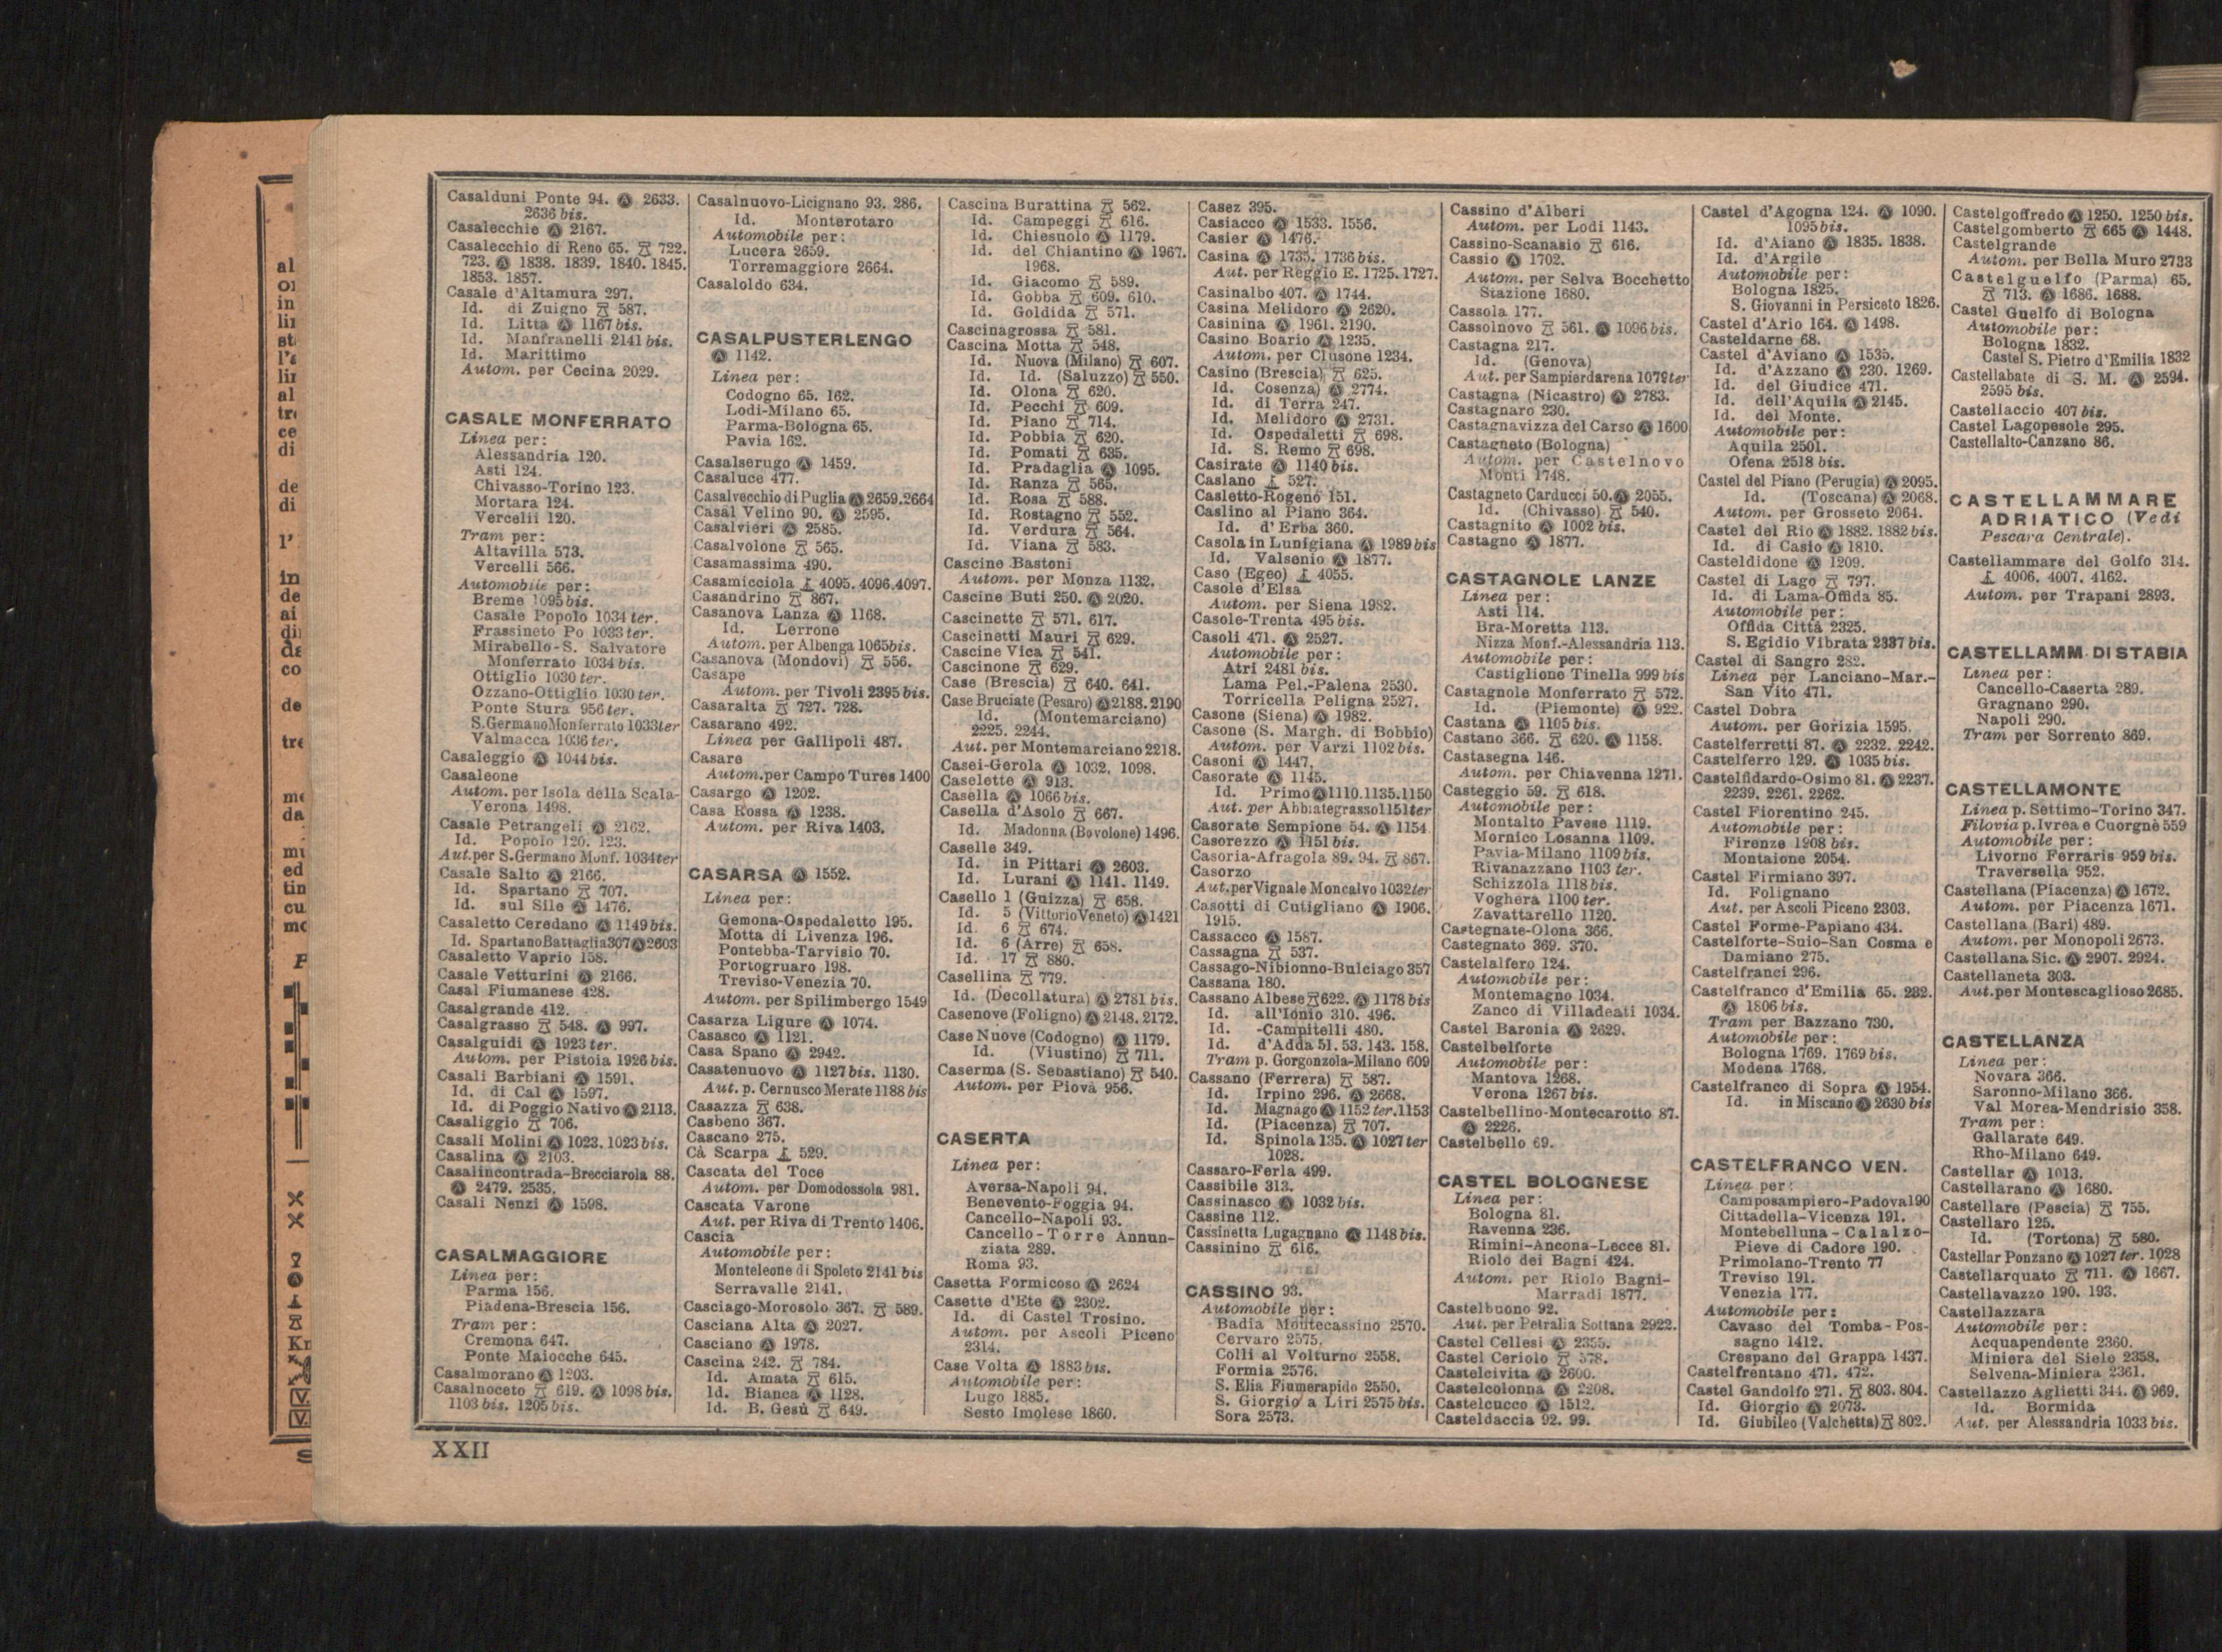 Casalduni Ponte 94. Ⓐ 2633.
2636 bis.
Casalecchie Ⓐ 2167.
Casalecchio di Reno 65. 722.
723. Ⓐ 1838. 1839. 1840. 1845.
1853. 1857.
Casale d'Altamura 297.
Id. di Zuigno 587.
Id. Litta Ⓐ 1167 bis.
Id. Manfranelli 2141 bis.
Id. Marittimo
Autom. per Cecina 2029.
CASALE MONFERRATO
Linea per:
Alessandria 120.
Asti 124.
Chivasso-Torino 123.
Mortara 124.
Vercelli 120.
Tram per:
Altavilla 573.
Vercelli 566.
Automobile per:
Breme 1095 bis.
Casale Popolo 1034 ter.
Frassineto Po 1033 ter.
Mirabello-S. Salvatore
Monferrato 1034 bis.
Ottiglio 1030 ter.
Ozzano-Ottiglio 1030 ter.
Ponte Stura 956 ter.
S. Germano Monferrato 1033 ter
Valmacca 1036 ter.
Casaleggio Ⓐ 1044 bis.
Casaleone
Autom. per Isola della Scala-
Verona 1498.
Casale Petrangeli Ⓐ 2162.
Id. Popolo 120. 123.
Aut. per S. Germano Monf. 1034 ter
Casale Salto Ⓐ 2166.
Id. Spartano 707.
Id. sul Sile Ⓐ 1476.
Casaletto Ceredano Ⓐ 1149 bis.
Id. Spartano Battaglia 307 Ⓐ 2603
Casaletto Vaprio 158.
Casale Vetturini Ⓐ 2166.
Casal Fiumanese 428.
Casalgrande 412.
Casalgrasso 548. Ⓐ 997.
Casalguidi Ⓐ 1923 ter.
Autom. per Pistoia 1926 bis.
Casali Barbiani Ⓐ 1591.
Id. di Cal Ⓐ 1597.
Id. di Poggio Nativo Ⓐ 2113.
Casaliggio 706.
Casali Molini Ⓐ 1023. 1023 bis.
Casalina Ⓐ 2103.
Casalincontrada-Brecciarola 88.
Ⓐ 2479. 2535.
Casali Nenzi Ⓐ 1598.
CASALMAGGIORE
Linea per:
Parma 156.
Piadena-Brescia 156.
Tram per:
Cremona 647.
Ponte Maiocche 645.
Casalmorano Ⓐ 1203.
Casalnoceto 619. Ⓐ 1098 bis.
1103 bis. 1205 bis.
Casalnuovo-Licignano 93. 286.
Id. Monterotaro
Automobile per:
Lucera 2659.
Torremaggiore 2664.
Casaloldo 634.
CASALPUSTERLENGO
Ⓐ 1142.
Linea per:
Codogno 65. 162.
Lodi-Milano 65.
Parma-Bologna 65.
Pavia 162.
Casalserugo Ⓐ 1459.
Casaluce 477.
Casalvecchio di Puglia Ⓐ 2659. 2664
Casal Velino 90. Ⓐ 2595.
Casalvieri Ⓐ 2585.
Casalvolone 565.
Casamassima 490.
Casamicciola 4095. 4096. 4097.
Casandrino 867.
Casanova Lanza Ⓐ 1168.
Id. Lerrone
Autom. per Albenga 1065 bis.
Casanova (Mondovì) 556.
Casape
Autom. per Tivoli 2395 bis.
Casaralta 727. 728.
Casarano 492.
Linea per Gallipoli 487.
Casare
Autom. per Campo Tures 1400
Casargo Ⓐ 1202.
Casa Rossa Ⓐ 1238.
Autom. per Riva 1403.
CASARSA Ⓐ 1552.
Linea per:
Gemona-Ospedaletto 195.
Motta di Livenza 196.
Pontebba-Tarvisio 70.
Portogruaro 198.
Treviso-Venezia 70.
Autom. per Spilimbergo 1549
Casarza Ligure Ⓐ 1074.
Casasco Ⓐ 1121.
Casa Spano Ⓐ 2942.
Casatenuovo Ⓐ 1127 bis. 1130.
Aut. p. Cernusco Merate 1188 bis
Casazza 638.
Casbeno 367.
Cascano 275.
Cà Scarpa 529.
Cascata del Toce
Autom. per Domodossola 981.
Cascata Varone
Aut. per Riva di Trento 1406.
Cascia
Automobile per:
Monteleone di Spoleto 2141 bis
Serravalle 2141.
Casciago-Morosolo 367. 589.
Casciana Alta Ⓐ 2027.
Casciano Ⓐ 1978.
Cascina 242. 784.
Id. Amata 615.
Id. Bianca Ⓐ 1128.
Id. B. Gesù 649.
Cascina Burattina 562.
Id. Campeggi 616.
Id. Chiesuolo Ⓐ 1179.
Id. del Chiantino Ⓐ 1967.
1968.
Id. Giacomo 589.
Id. Gobba 609. 610.
Id. Goldida 571.
Cascinagrossa 581.
Cascina Motta 548.
Id. Nuova (Milano) 607.
Id. Id. (Saluzzo) 550.
Id. Olona 620.
Id. Pecchi 609.
Id. Piano 714.
Id. Pobbia 620.
Id. Pomati 635.
Id. Pradaglia Ⓐ 1095.
Id. Ranza 565.
Id. Rosa 588.
Id. Rostagno 552.
Id. Verdura 564.
Id. Viana 583.
Cascine Bastoni
Autom. per Monza 1132.
Cascine Buti 250. Ⓐ 2020.
Cascinette 571. 617.
Cascinetti Mauri 629.
Cascine Vica 541.
Cascinone 629.
Case (Brescia) 640. 641.
Case Bruciate (Pesaro) Ⓐ 2188. 2190
Id. (Montemarciano)
2225. 2244.
Aut. per Montemarciano 2218.
Casei-Gerola Ⓐ 1032. 1098.
Caselette Ⓐ 913.
Casella Ⓐ 1066 bis.
Casella d'Asolo 667.
Id. Madonna (Bovolone) 1496.
Caselle 349.
Id. in Pittari Ⓐ 2603.
Id. Lurani Ⓐ 1141. 1149.
Casello 1 (Guizza) 658.
Id. 5 (Vittorio Veneto) Ⓐ 1421
Id. 6 674.
Id. 6 (Arre) 658.
Id. 17 880.
Casellina 779.
Id. (Decollatura) Ⓐ 2781 bis.
Casenove (Foligno) Ⓐ 2148. 2172.
Case Nuove (Codogno) Ⓐ 1179.
Id. (Viustino) 711.
Caserma (S. Sebastiano) 540.
Autom. per Piovà 956.
CASERTA
Linea per:
Aversa-Napoli 94.
Benevento-Foggia 94.
Cancello-Napoli 93.
Cancello-Torre Annun-
ziata 289.
Roma 93.
Casetta Formicoso Ⓐ 2624
Casette d'Ete Ⓐ 2302.
Id. di Castel Trosino.
Autom. per Ascoli Piceno
2314.
Case Volta Ⓐ 1883 bis.
Automobile per:
Lugo 1885.
Sesto Imolese 1860.
Casez 395.
Casiacco Ⓐ 1533. 1556.
Casier Ⓐ 1476.
Casina Ⓐ 1735. 1736 bis.
Aut. per Reggio E. 1725. 1727.
Casinalbo 407. Ⓐ 1744.
Casina Melidoro Ⓐ 2620.
Casinina Ⓐ 1961. 2190.
Casino Boario Ⓐ 1235.
Autom. per Clusone 1234.
Casino (Brescia) 625.
Id. Cosenza) Ⓐ 2774.
Id. di Terra 247.
Id. Melidoro Ⓐ 2731.
Id. Ospedaletti 698.
Id. S. Remo 698.
Casirate Ⓐ 1140 bis.
Caslano 527.
Casletto-Rogeno 151.
Caslino al Piano 364.
Id. d'Erba 360.
Casola in Lunigiana Ⓐ 1989 bis
Id. Valsenio Ⓐ 1877.
Caso (Egeo) 4055.
Casole d'Elsa
Autom. per Siena 1982.
Casole-Trenta 495 bis.
Casoli 471. Ⓐ 2527.
Automobile per:
Atri 2481 bis.
Lama Pel.-Palena 2530.
Torricella Peligna 2527.
Casone (Siena) Ⓐ 1982.
Casone (S. Margh. di Bobbio)
Autom. per Varzi 1102 bis.
Casoni Ⓐ 1447.
Casorate Ⓐ 1145.
Id. Primo Ⓐ 1110. 1135. 1150
Aut. per Abbiategrasso 1151 ter
Casorate Sempione 54. Ⓐ 1154
Casorezzo Ⓐ 1151 bis.
Casoria-Afragola 89. 94. 867.
Casorzo
Aut. per Vignale Moncalvo 1032 ter
Casotti di Cutigliano Ⓐ 1906.
1915.
Cassacco Ⓐ 1587.
Cassagna 537.
Cassago-Nibionno-Bulciago 357
Cassana 180.
Cassano Albese 622. Ⓐ 1178 bis
Id. all'Ionio 310. 496.
Id. -Campitelli 480.
Id. d'Adda 51. 53. 143. 158.
Tram p. Gorgonzola-Milano 609
Cassano (Ferrera) 587.
Id. Irpino 296. Ⓐ 2668.
Id. Magnago Ⓐ 1152 ter. 1153
Id. (Piacenza) 707.
Id. Spinola 135. Ⓐ 1027 ter
1028.
Cassaro-Ferla 499.
Cassibile 313.
Cassinasco Ⓐ 1032 bis.
Cassine 112.
Cassinetta Lugagnano Ⓐ 1148 bis.
Cassinino 616.
CASSINO 93.
Automobile per:
Badia Montecassino 2570.
Cervaro 2575.
Colli al Volturno 2558.
Formia 2576.
S. Elia Fiumerapido 2550.
S. Giorgio a Liri 2575 bis.
Sora 2573.
Cassino d'Alberi
Autom. per Lodi 1143.
Cassino-Scanasio 616.
Cassio Ⓐ 1702.
Autom. per Selva Bocchetto
Stazione 1680.
Cassola 177.
Cassolnovo 561. Ⓐ 1096 bis.
Castagna 217.
Id. (Genova)
Aut. per Sampierdarena 1079 ter
Castagna (Nicastro) Ⓐ 2783.
Castagnaro 230.
Castagnavizza del Carso Ⓐ 1600
Castagneto (Bologna)
Autom. per Castelnovo
Monti 1748.
Castagneto Carducci 50. Ⓐ 2055.
Id. (Chivasso) 540.
Castagnito Ⓐ 1002 bis.
Castagno Ⓐ 1877.
CASTAGNOLE LANZE
Linea per:
Asti 114.
Bra-Moretta 113.
Nizza Monf.-Alessandria 113.
Automobile per:
Castiglione Tinella 999 bis
Castagnole Monferrato 572.
Id. (Piemonte) Ⓐ 922.
Castana Ⓐ 1105 bis.
Castano 366. 620. Ⓐ 1158.
Castasegna 146.
Autom. per Chiavenna 1271.
Casteggio 59. 618.
Automobile per:
Montalto Pavese 1119.
Mornico Losanna 1109.
Pavia-Milano 1109 bis.
Rivanazzano 1103 ter.
Schizzola 1118 bis.
Voghera 1100 ter.
Zavattarello 1120.
Castegnate-Olona 366.
Castegnato 369. 370.
Castelalfero 124.
Automobile per:
Montemagno 1034.
Zanco di Villadeati 1034.
Castel Baronia Ⓐ 2629.
Castelbelforte
Automobile per:
Mantova 1268.
Verona 1267 bis.
Castelbellino-Montecarotto 87.
Ⓐ 2226.
Castelbello 69.
CASTEL BOLOGNESE
Linea per:
Bologna 81.
Ravenna 236.
Rimini-Ancona-Lecce 81.
Riolo dei Bagni 424.
Autom. per Riolo Bagni-
Marradi 1877.
Castelbuono 92.
Aut. per Petralia Sottana 2922.
Castel Cellesi Ⓐ 2355.
Castel Ceriolo 578.
Castelcivita Ⓐ 2600.
Castelcolonna Ⓐ 2208.
Castelcucco Ⓐ 1512.
Casteldaccia 92. 99.
Castel d'Agogna 124. Ⓐ 1090.
1095 bis.
Id. d'Aiano Ⓐ 1835. 1838.
Id. d'Argile
Automobile per:
Bologna 1825.
S. Giovanni in Persiceto 1826.
Castel d'Ario 164. Ⓐ 1498.
Casteldarne 68.
Castel d'Aviano Ⓐ 1535.
Id. d'Azzano Ⓐ 230. 1269.
Id. del Giudice 471.
Id. dell'Aquila Ⓐ 2145.
Id. del Monte.
Automobile per:
Aquila 2501.
Ofena 2518 bis.
Castel del Piano (Perugia) Ⓐ 2095.
Id. (Toscana) Ⓐ 2068.
Autom. per Grosseto 2064.
Castel del Rio Ⓐ 1882. 1882 bis.
Id. di Casio Ⓐ 1810.
Casteldidone Ⓐ 1209.
Castel di Lago 797.
Id. di Lama-Offida 85.
Automobile per:
Offida Città 2325.
S. Egidio Vibrata 2337 bis.
Castel di Sangro 282.
Linea per Lanciano-Mar.-
San Vito 471.
Castel Dobra
Autom. per Gorizia 1595.
Castelferretti 87. Ⓐ 2232. 2242.
Castelferro 129. Ⓐ 1035 bis.
Castelfidardo-Osimo 81. Ⓐ 2237.
2239. 2261. 2262.
Castel Fiorentino 245.
Automobile per:
Firenze 1908 bis.
Montaione 2054.
Castel Firmiano 397.
Id. Folignano
Aut. per Ascoli Piceno 2303.
Castel Forme-Papiano 434.
Castelforte-Suio-San Cosma e
Damiano 275.
Castelfranci 296.
Castelfranco d'Emilia 65. 232.
Ⓐ 1806 bis.
Tram per Bazzano 730.
Automobile per:
Bologna 1769. 1769 bis.
Modena 1768.
Castelfranco di Sopra Ⓐ 1954.
Id. in Miscano Ⓐ 2630 bis
CASTELFRANCO VEN.
Linea per:
Camposampiero-Padova 190
Cittadella-Vicenza 191.
Montebelluna-Calalzo-
Pieve di Cadore 190.
Primolano-Trento 77
Treviso 191.
Venezia 177.
Automobile per:
Cavaso del Tomba-Pos-
sagno 1412.
Crespano del Grappa 1437.
Castelfrentano 471. 472.
Castel Gandolfo 271. 803. 804.
Id. Giorgio Ⓐ 2073.
Id. Giubileo (Valchetta) 802.
Castelgoffredo Ⓐ 1250. 1250 bis.
Castelgomberto 665 Ⓐ 1448.
Castelgrande
Autom. per Bella Muro 2733
Castelguelfo (Parma) 65.
713. Ⓐ 1686. 1688.
Castel Guelfo di Bologna
Automobile per:
Bologna 1832.
Castel S. Pietro d'Emilia 1832
Castellabate di S. M. Ⓐ 2594.
2595 bis.
Castellaccio 407 bis.
Castel Lagopesole 295.
Castellalto-Canzano 86.
CASTELLAMMARE
ADRIATICO (Vedi
Pescara Centrale).
Castellammare del Golfo 314.
4006. 4007. 4162.
Autom. per Trapani 2893.
CASTELLAMM. DI STABIA
Linea per:
Cancello-Caserta 289.
Gragnano 290.
Napoli 290.
Tram per Sorrento 869.
CASTELLAMONTE
Linea p. Settimo-Torino 347.
Filovia p. Ivrea e Cuorgnè 559
Automobile per:
Livorno Ferraris 959 bis.
Traversella 952.
Castellana (Piacenza) Ⓐ 1672.
Autom. per Piacenza 1671.
Castellana (Bari) 489.
Autom. per Monopoli 2673.
Castellana Sic. Ⓐ 2907. 2924.
Castellaneta 303.
Aut. per Montescaglioso 2685.
CASTELLANZA
Linea per:
Novara 366.
Saronno-Milano 366.
Val Morea-Mendrisio 358.
Tram per:
Gallarate 649.
Rho-Milano 649.
Castellar Ⓐ 1013.
Castellarano Ⓐ 1680.
Castellare (Pescia) 755.
Castellaro 125.
Id. (Tortona) 580.
Castellar Ponzano Ⓐ 1027 ter. 1028
Castellarquato 711. Ⓐ 1667.
Castellavazzo 190. 193.
Castellazzara
Automobile per:
Acquapendente 2360.
Miniera del Siele 2358.
Selvena-Miniera 2361.
Castellazzo Aglietti 344. Ⓐ 969.
Id. Bormida
Aut. per Alessandria 1033 bis.
XXII